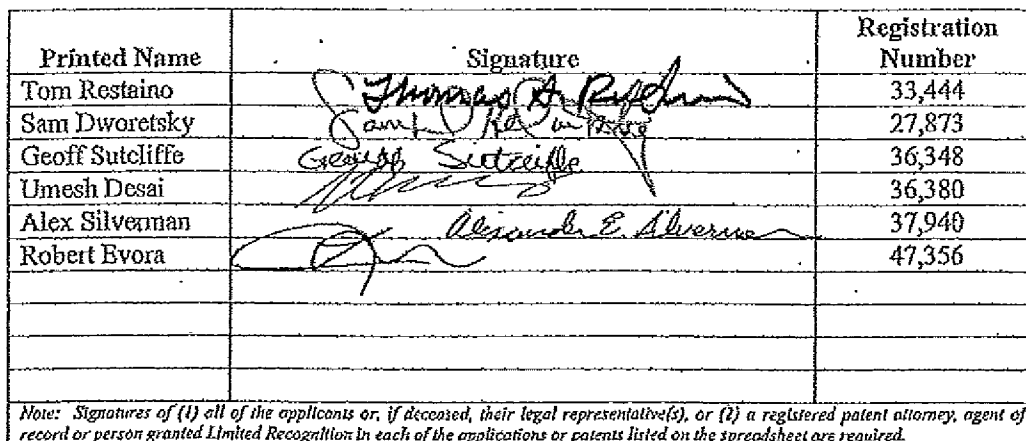 Printed Name Signature Registration Number
Tom Restaino Thomas A. Restaino 33,444
Sam Dworetsky Samuel 27,873
Geoff Sutcliffe Geoff Sutcliffe 36,348
Umesh Desai 36,380
Alex Silverman Alexander E. Silverman 37,940
Robert Evora 47,356
Note: Signatures of (1) all of the applicants or, if deceased, their legal representative(s), or (2) a registered patent attorney, agent of
record or person granted Limited Recognition in each of the applications or patents listed on the spreadsheet are required.